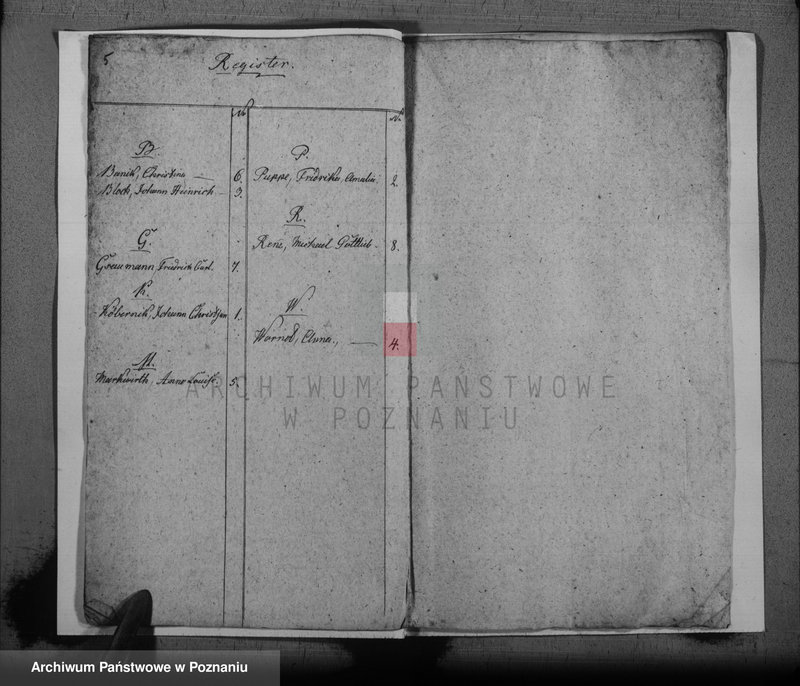 5
Register.
No
B.
Banik, Christina — 6.
Block, Johann Heinrich - 3.
G.
Graumann Friedrich Carl. 7.
K.
Köbernik, Johann Christian 1.
M.
Markwirth, Anna Louise. 5.
No
P.
Puppe, Fridrika Amalia. 2.
R.
Renz, Michael Gottlieb - 8.
W.
Warnst, Anna, — 4.
ARCHIWUM PAŃSTWOWE
W POZNANIU
Archiwum Państwowe w Poznaniu